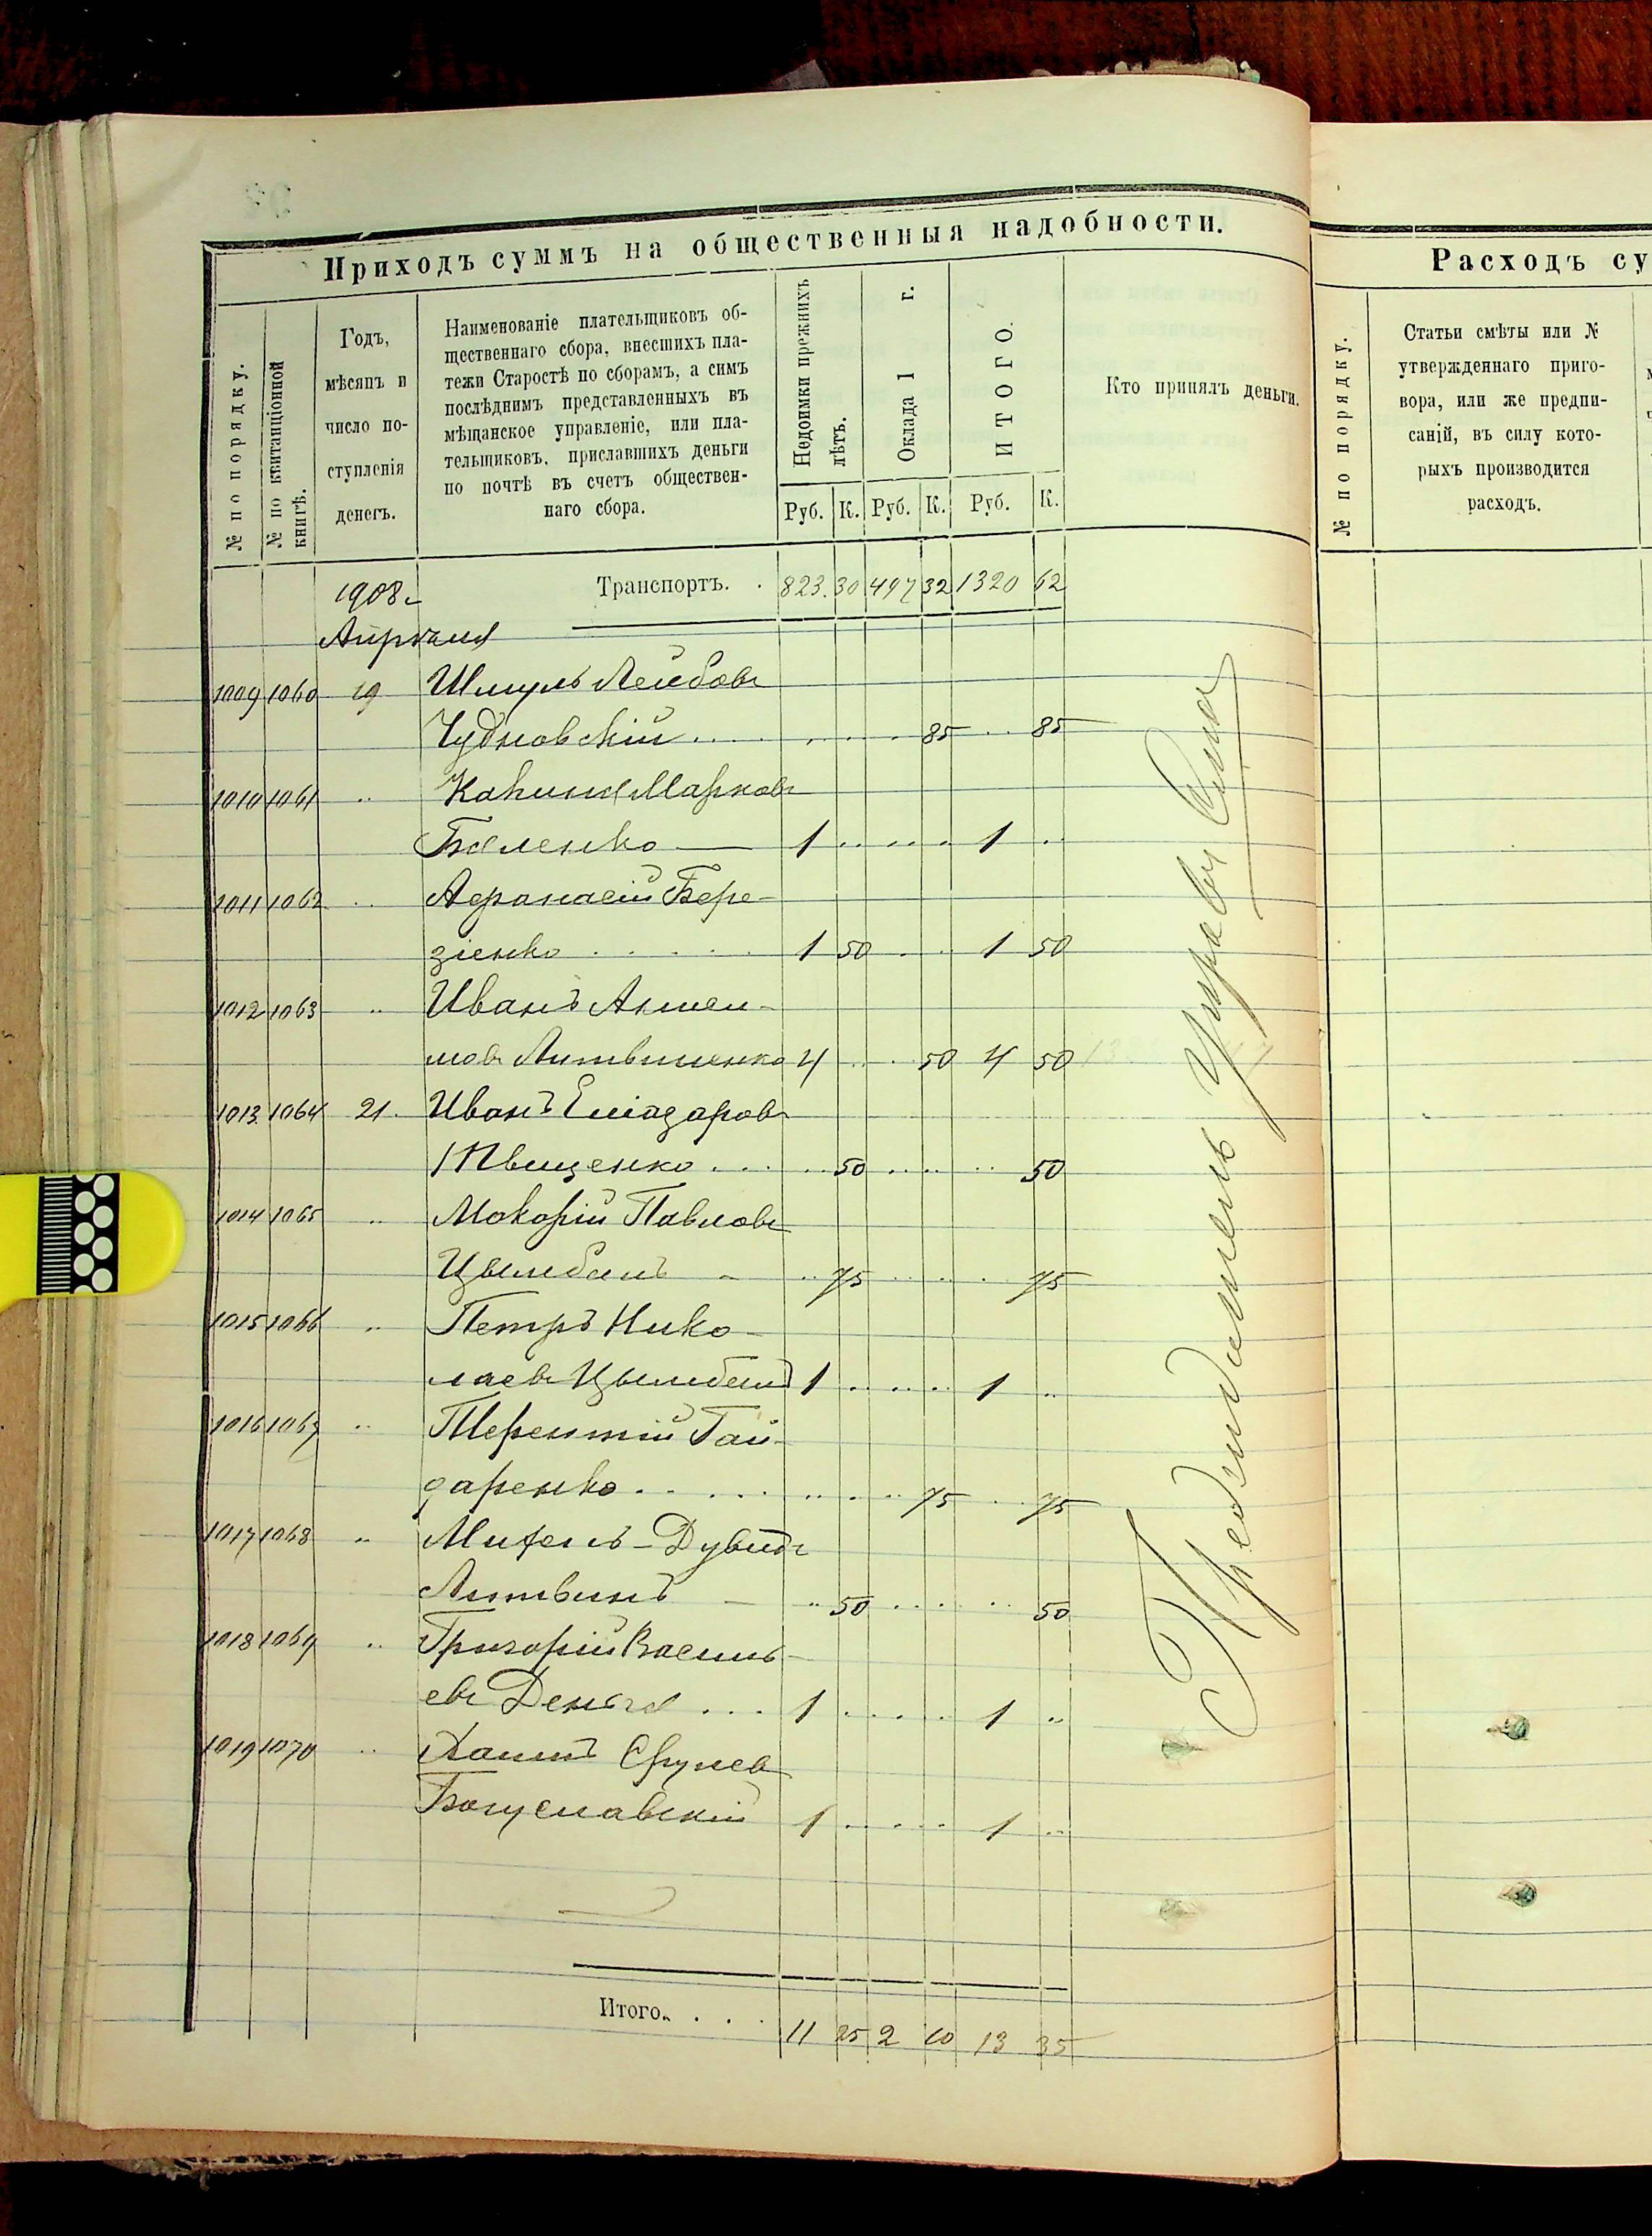 Приходъ суммъ на общественныя надобности.
№ по порядку.
№ по квитанціонной книгѣ.
Годъ,
мѣсяцъ и
число по-
ступленія
денегъ.
Наименованіе плательщиковъ об-
щественнаго сбора, внесшихъ пла-
тежи Старостѣ по сборамъ, а симъ
послѣднимъ представленныхъ въ
мѣщанское управленіе, или пла-
тельщиковъ, приславшихъ деньги
по почтѣ въ счетъ обществен-
наго сбора.
Недоимки прежнихъ лѣтъ.
Оклада 1 г.
ИТОГО.
Руб. К. Руб. К. Руб. К.
Кто принялъ деньги.
1908 г. Транспортъ. . 823. 30 497 32 1320 62
Апрѣля
1009 1060 19 Шмуль Лейбовъ
Чудновскій .... 85 85
1010 1061 " Марковъ
Бѣленко — 1 .. .. .. 1 ..
1011 1062 " Афанасій Бере-
зіенко ..... 1 50 .. .. 1 50
1012 1063 " Иванъ
Литвиненко 4 .. .. 50 4 50
1013 1064 21. Иванъ Еліазаровъ
.... .. 50 .. .. .. 50
1014 1065 " Макарій Павловъ
Цымбалъ - .. 75 .. .. .. 75
1015 1066 " Петръ Нико-
лаевъ Цымбалъ 1 .. .. .. 1 ..
1016 1067 " Терентій Гай-
даренко ..... .. .. .. 75 .. 75
1017 1068 " Михель-Дувидъ
Литвинъ — .. 50 .. .. .. 50
1018 1069 " Григорій Василь-
евъ Деньга ... 1 .. .. .. 1 ..
1019 1070 "
Богуславскій 1 .. .. .. 1 ..
Итого. . . . 11 25 2 60 13 35
Расходъ су
№ по порядку.
Статьи смѣты или №
утвержденнаго приго-
вора, или же предпи-
саній, въ силу кото-
рыхъ производится
расходъ.